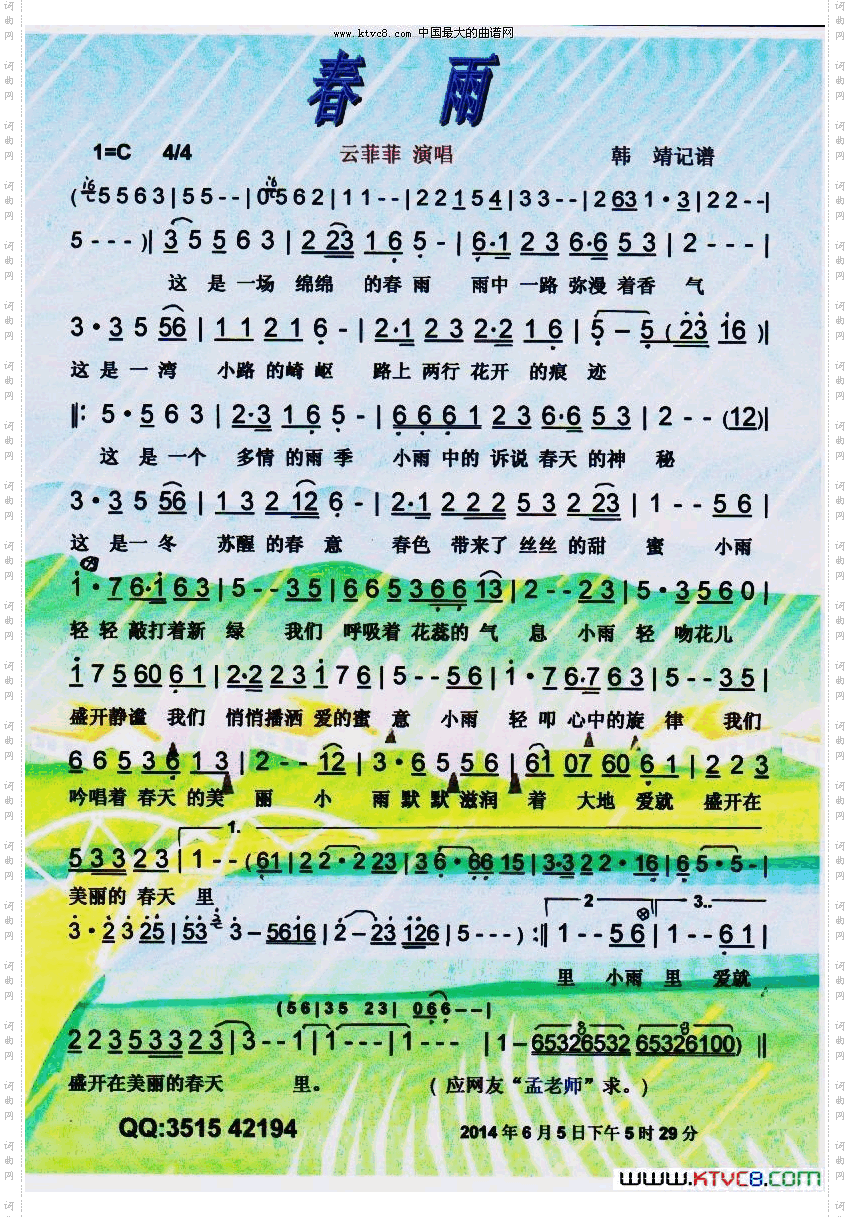 www.ktvc8.com 中国最大的曲谱网
春 雨
1=C 4/4 云菲菲 演唱 韩 靖记谱
( 5 5 6 3 | 5 5 - - | 0 5 6 2 | 1 1 - - | 2 2 1 5 4 | 3 3 - - | 2 63 1 · 3 | 2 2 - - |
5 - - - )| 3 5 5 6 3 | 2 23 1 6 5 - | 6·1 2 3 6·6 5 3 | 2 - - - |
这 是 一场 绵绵 的春 雨 雨中 一路 弥漫 着香 气
3 · 3 5 56 | 1 1 2 1 6 - | 2·1 2 3 2·2 1 6 | 5 – 5 ( 23 16 )|
这 是 一 湾 小路 的崎 岖 路上 两行 花开 的痕 迹
‖: 5 · 5 6 3 | 2·3 1 6 5 - | 6 6 6 1 2 3 6·6 5 3 | 2 - - (12)|
这 是 一个 多情 的雨 季 小雨 中的 诉说 春天 的神 秘
3 · 3 5 56 | 1 3 2 12 6 - | 2·1 2 2 2 5 3 2 23 | 1 - - 5 6 |
这 是一 冬 苏醒 的春 意 春色 带来了 丝丝 的甜 蜜 小雨
1 · 7 6·1 6 3 | 5 - - 3 5 | 6 6 5 3 6 6 13 | 2 - - 2 3 | 5 · 3 5 6 0 |
轻 轻 敲打着新 绿 我们 呼吸着 花蕊的 气 息 小雨 轻 吻花儿
1 7 5 60 6 1 | 2·2 2 3 1 7 6 | 5 - - 5 6 | 1 · 7 6·7 6 3 | 5 - - 3 5 |
盛开静谧 我们 悄悄播洒 爱的蜜 意 小雨 轻 叩 心中的旋 律 我们
6 6 5 3 6 1 3 | 2 - - 12 | 3 · 6 5 5 6 | 61 07 60 6 1 | 2 2 3
吟唱着 春天 的美 丽 小 雨 默 默 滋润 着 大地 爱就 盛开在
1.
5 3 3 2 3 | 1 - - ( 61 | 2 2 · 2 23 | 3 6 · 66 15 | 3·3 2 2 · 16 | 6 5 · 5 - |
美丽的 春天 里
2 3..
3 · 2 3 25 | 53 3 – 5616 | 2 – 23 126 | 5 - - - ) :‖ 1 - - 5 6 | 1 - - 6 1 |
里 小雨 里 爱就
( 5 6 | 3 5 2 3 | 0 6 6 - - |
2 2 3 5 3 3 2 3 | 3 - - 1 | 1 - - - | 1 - - - | 1 – 65326532 65326100) ‖
盛开在美丽的春天 里。 ( 应网友“孟老师”求。)
QQ:3515 42194 2014 年 6 月 5 日下午 5 时 29 分
www.KTVC8.com
词曲网